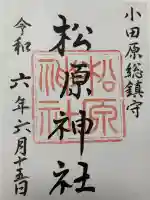 小田原総鎮守
松原神社
松原
神社
令和六年六月十五日